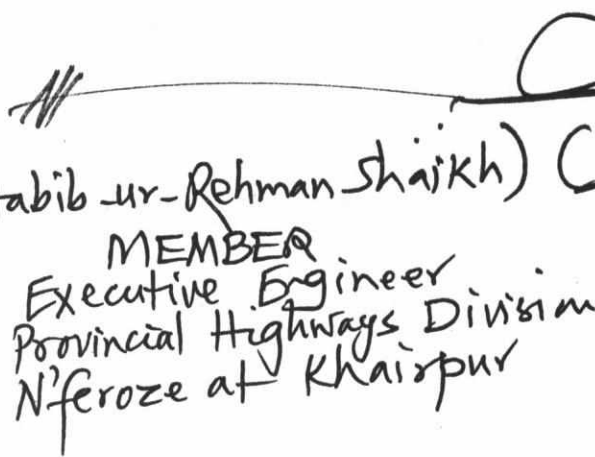 abib-ur-Rehman Shaikh) (
MEMBER
Executive Engineer
Provincial Highways Division
N'feroze at Khairpur